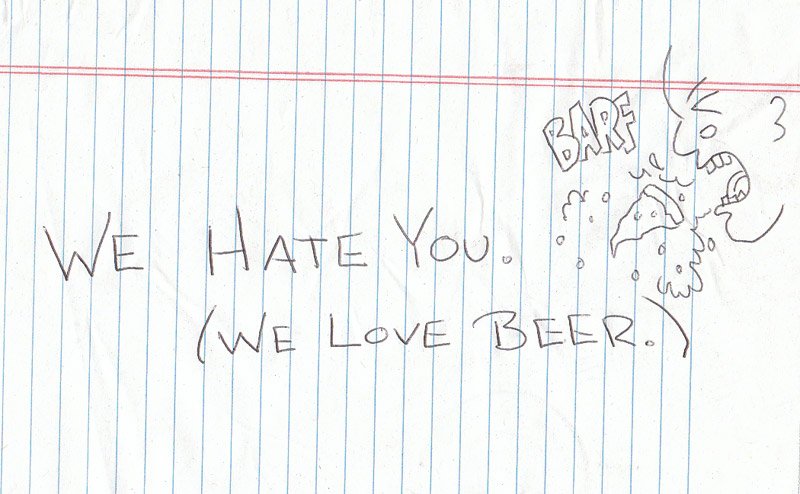 BARF
WE HATE YOU.
(WE LOVE BEER.)